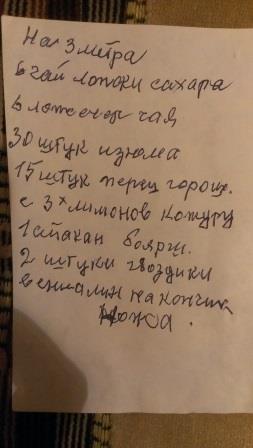 На 3 литра
6 чай ложки сахара
6 ложечек чая
30 штук изюма
15 штук перец горош.
с 3х лимонов кожуру
1 стакан боярш.
2 штуки гвоздики
ваниалин на кончик
ножа.